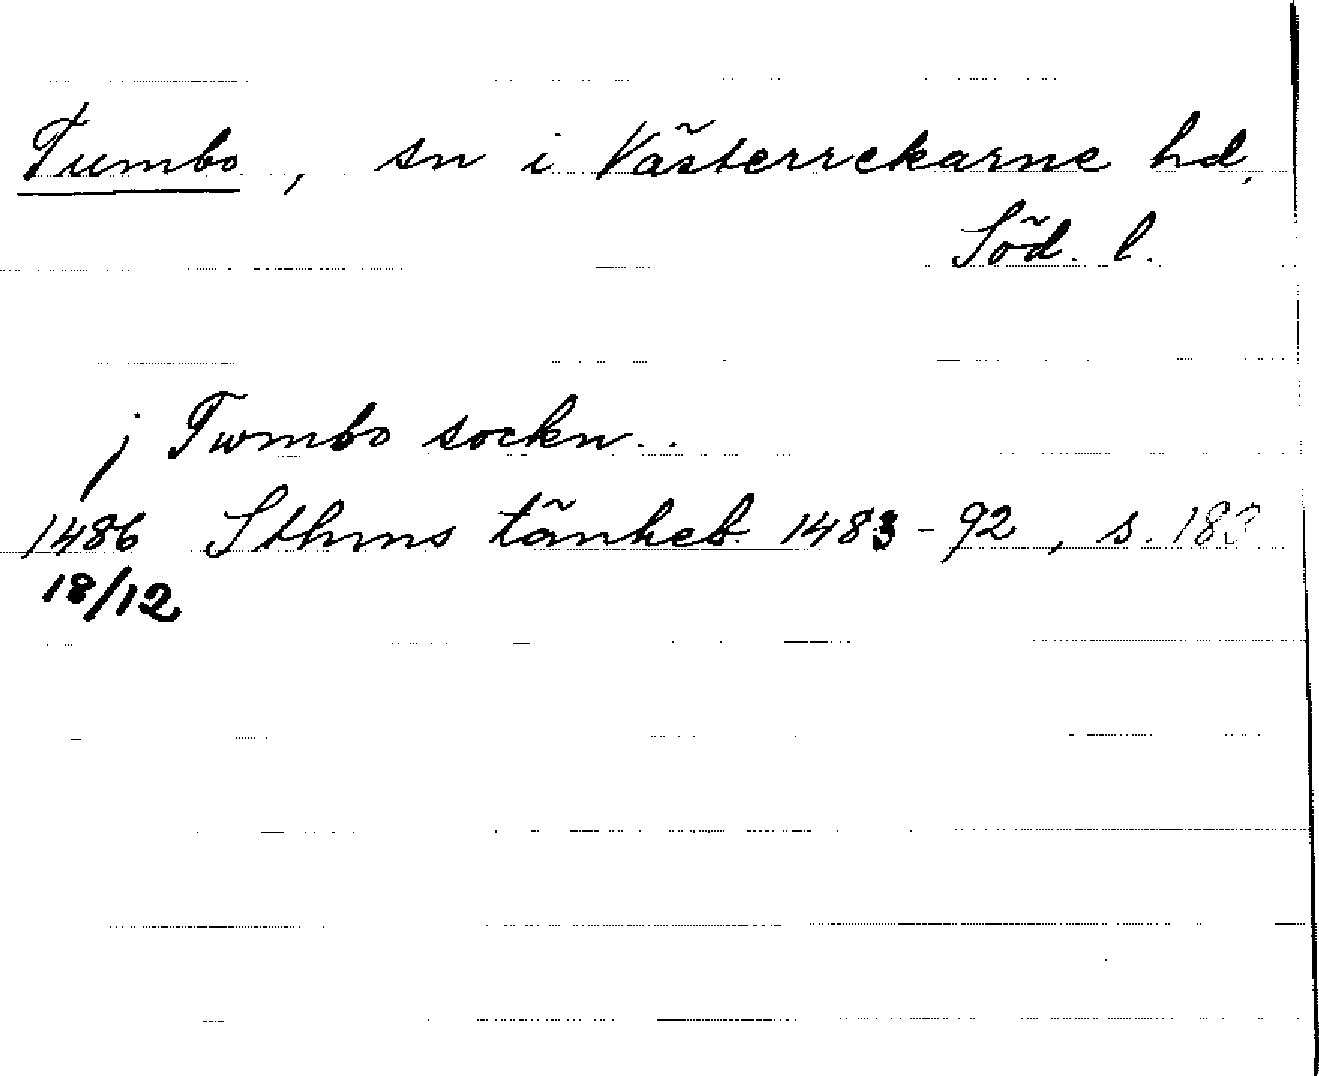 Tumbo, sn i Västerrekarne hd,
Söd. l.
j Twmbo sockn..
1486 Sthms tänkeb. 1483-92, s. 182
18/12